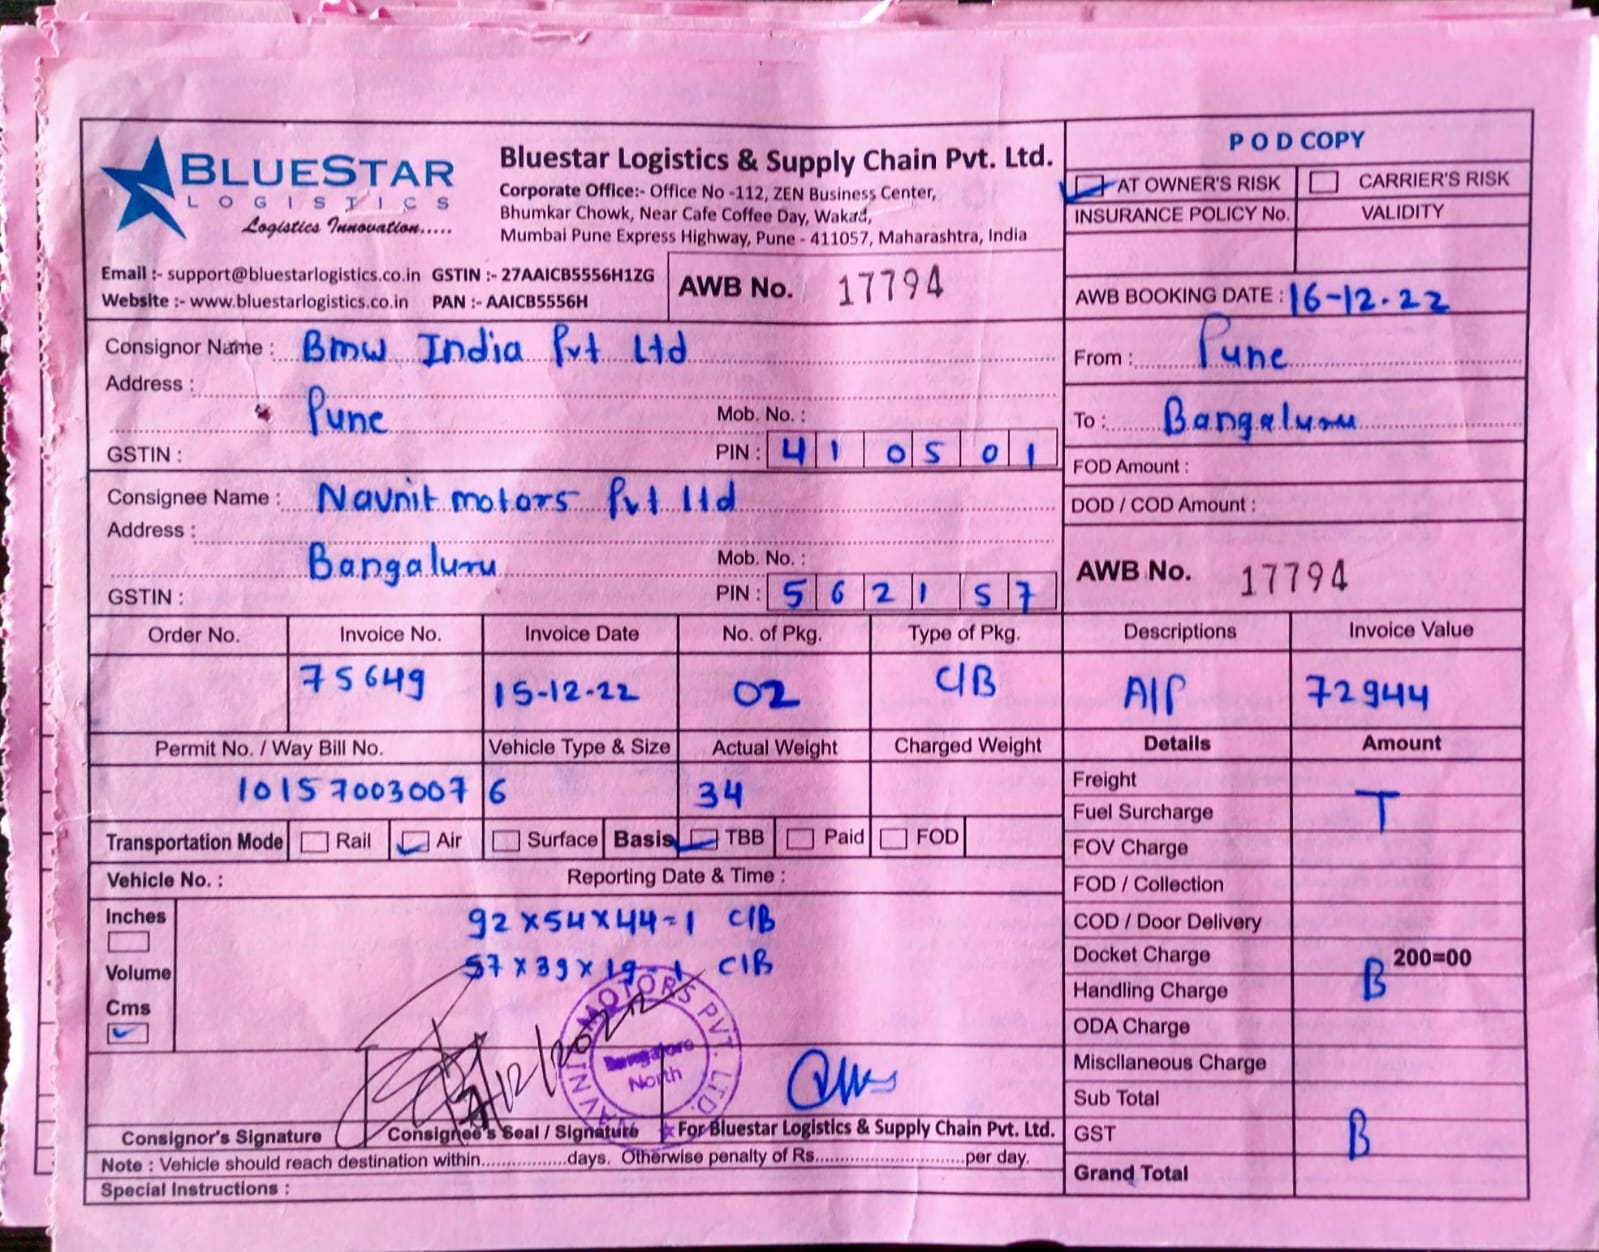 BLUESTAR
LOGISTICS
Logistics Innovation.....
Bluestar Logistics & Supply Chain Pvt. Ltd.
Corporate Office:- Office No -112, ZEN Business Center,
Bhumkar Chowk, Near Cafe Coffee Day, Wakad,
Mumbai Pune Express Highway, Pune - 411057, Maharashtra, India
POD COPY
AT OWNER'S RISK CARRIER'S RISK
INSURANCE POLICY No. VALIDITY
Email :- support@bluestarlogistics.co.in GSTIN :- 27AAICB5556H1ZG
Website :- www.bluestarlogistics.co.in PAN :- AAICB5556H
AWB No. 17794
AWB BOOKING DATE : 16-12-22
Consignor Name : Bmw India Pvt Ltd
Address :
Pune Mob. No. :
GSTIN : PIN : 410501
From : Pune
To : Bangaluru
FOD Amount :
DOD / COD Amount :
Consignee Name : Navnit motors Pvt ltd
Address :
Bangaluru Mob. No. :
GSTIN : PIN : 562157
AWB No. 17794
Order No. Invoice No. Invoice Date No. of Pkg. Type of Pkg. Descriptions Invoice Value
75649 15-12-22 02 C/B A/P 72944
Permit No. / Way Bill No. Vehicle Type & Size Actual Weight Charged Weight Details Amount
101570030076 34
Transportation Mode Rail Air Surface Basis TBB Paid FOD
Vehicle No. : Reporting Date & Time :
Inches
Volume
Cms
92 x 54 x 44 = 1 C/B
57 x 39 x 19 - 1 C/B
Freight
Fuel Surcharge T
FOV Charge
FOD / Collection
COD / Door Delivery
Docket Charge 200=00
Handling Charge B
ODA Charge
Miscllaneous Charge
Sub Total
GST B
Grand Total
NAVNIT MOTORS PVT. LTD.
Bangalore
North
Consignor's Signature Consignee's Seal / Signature For Bluestar Logistics & Supply Chain Pvt. Ltd.
Note : Vehicle should reach destination within.................days. Otherwise penalty of Rs..............................per day.
Special Instructions :